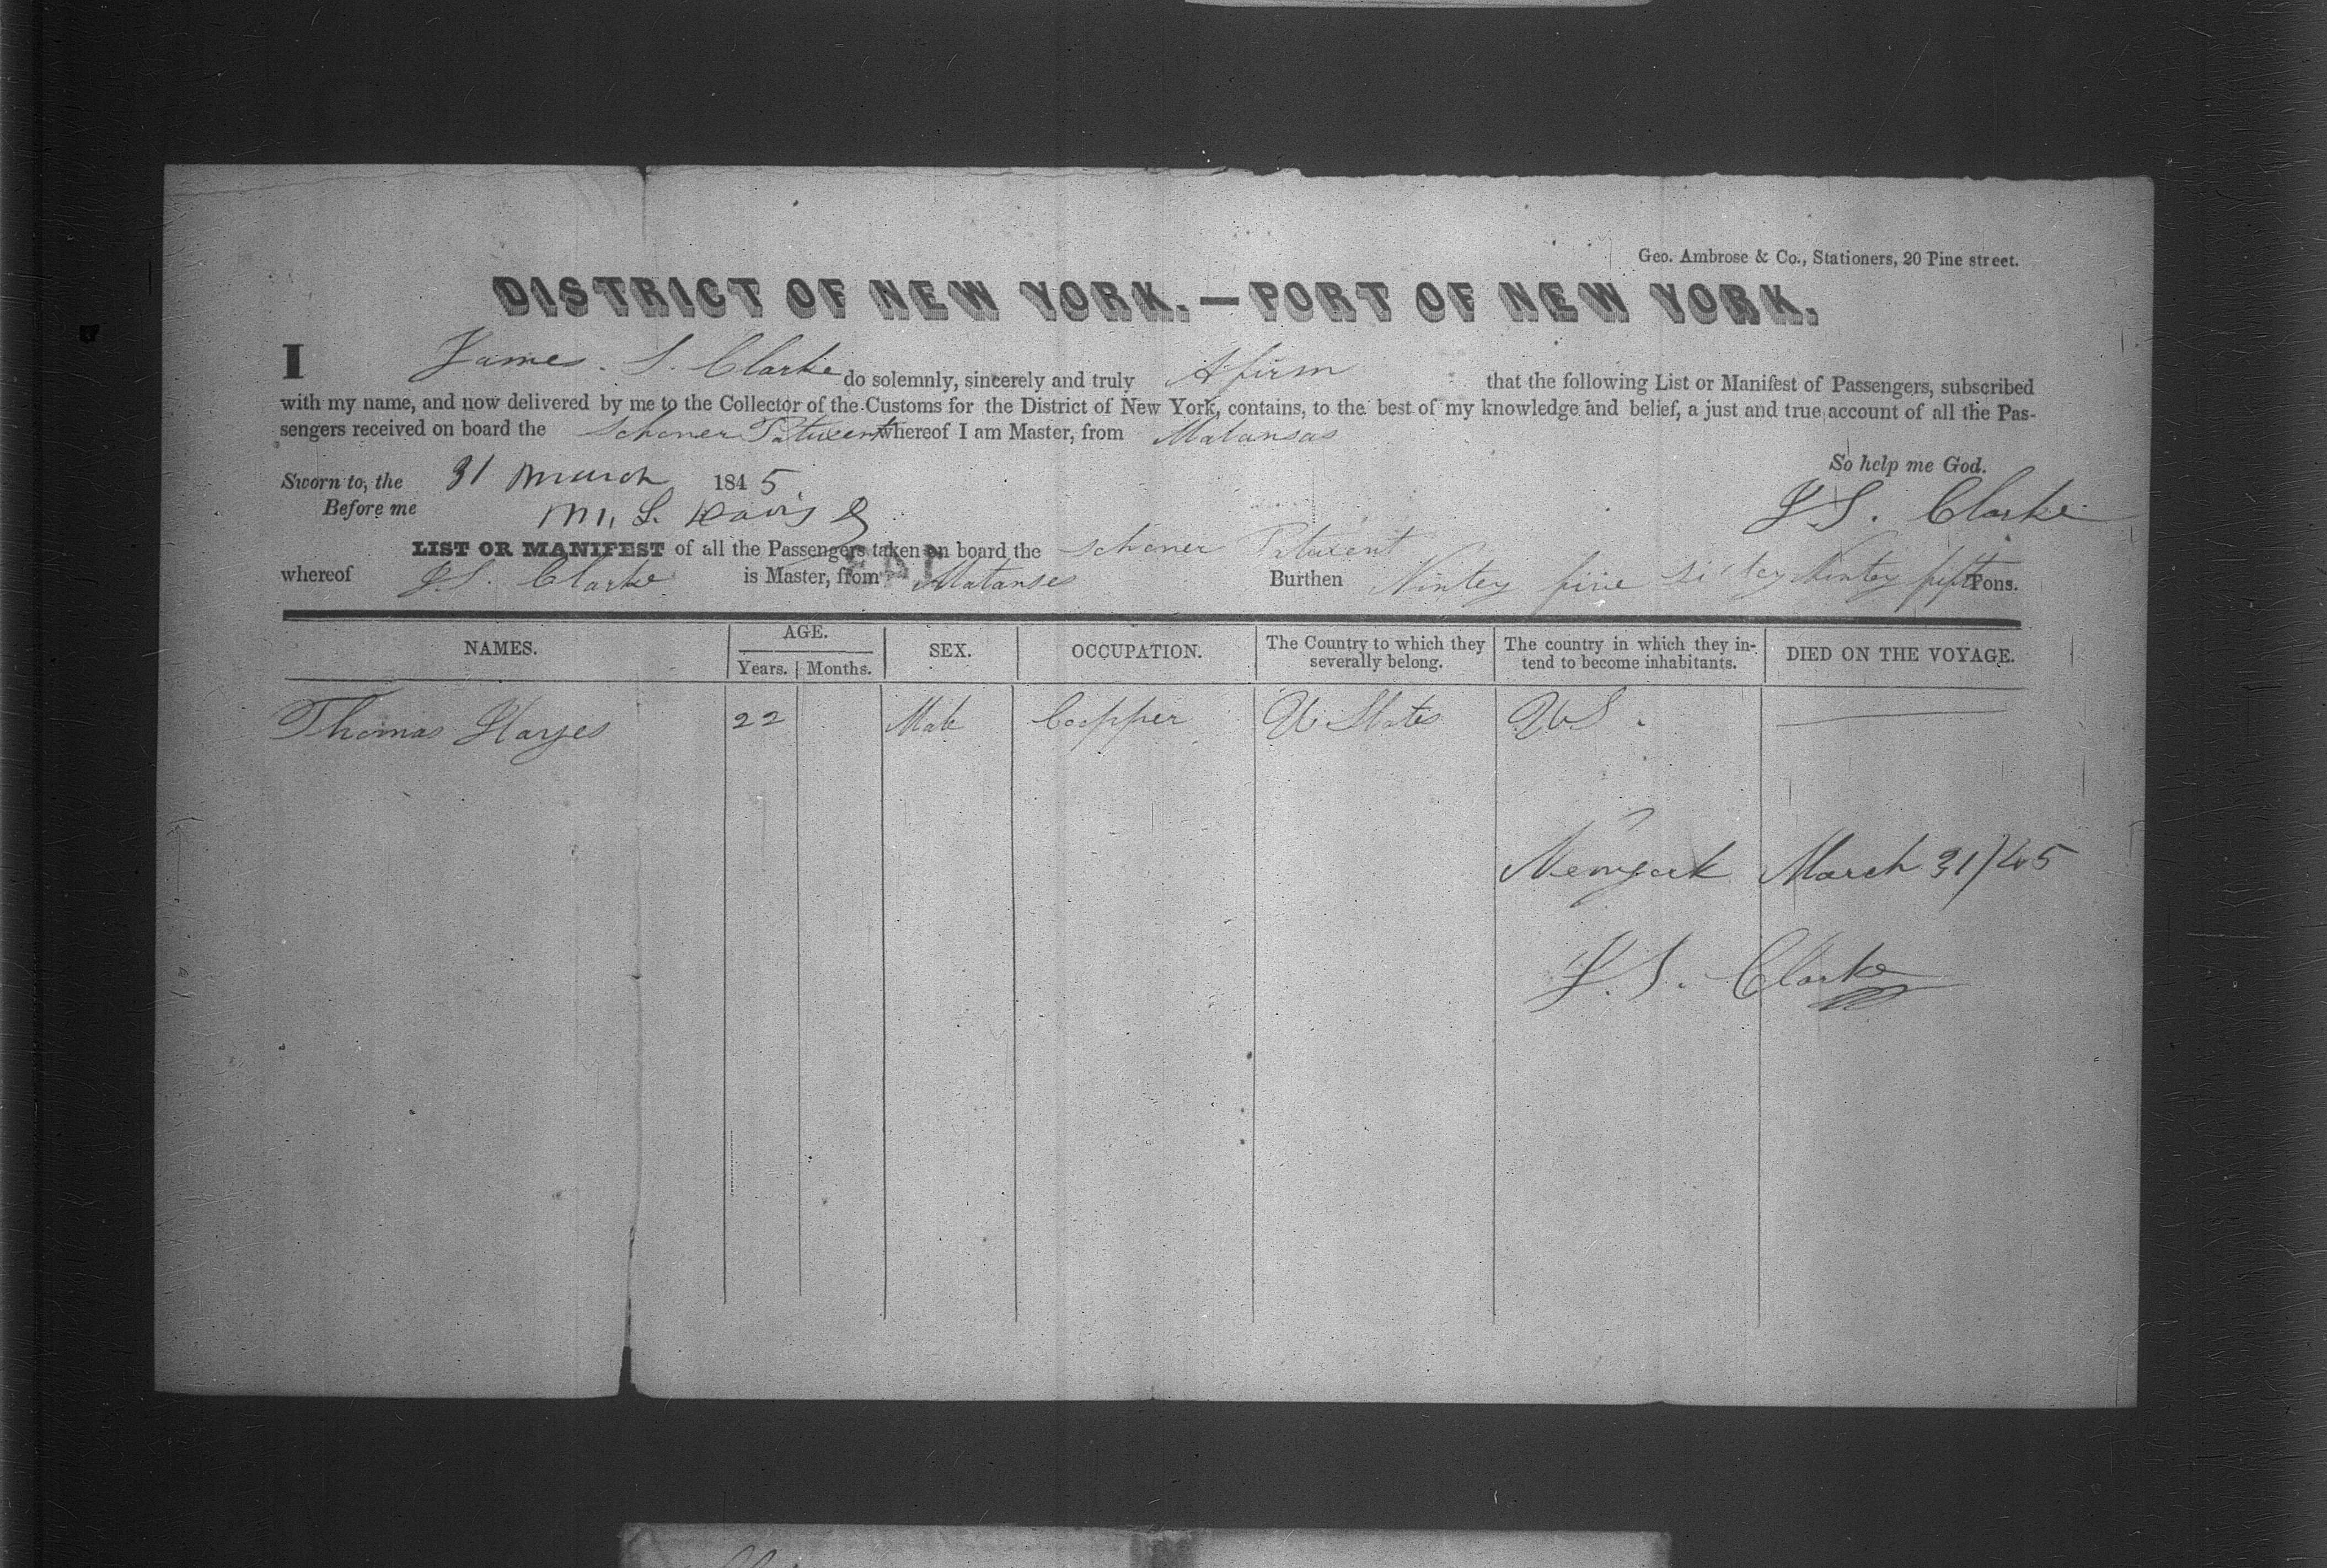 Geo. Ambrose & Co., Stationers, 20 Pine street.
DISTRICT OF NEW YORK.—PORT OF NEW YORK.
I James. S. Clarke do solemnly, sincerely and truly Afirm that the following List or Manifest of Passengers, subscribed
with my name, and now delivered by me to the Collector of the Customs for the District of New York, contains, to the best of my knowledge and belief, a just and true account of all the Pas-
sengers received on board the Schoner Patuxent whereof I am Master, from Matansas
So help me God.
Sworn to, the 31 March 1845.
J S. Clarke
Before me M. L. Davis
LIST OR MANIFEST of all the Passengers taken on board the Schoner Patuxent
whereof J S. Clarke is Master, from Matanses Burthen Nintey five Sixtey Nintey fift Tons.
NAMES. AGE. SEX. OCCUPATION. The Country to which they severally belong. The country in which they in-tend to become inhabitants. DIED ON THE VOYAGE.
Years. Months.
Thomas Hayes 22 Male Coopper U States U S.
Newyork March 31/45
J. S. Clarke